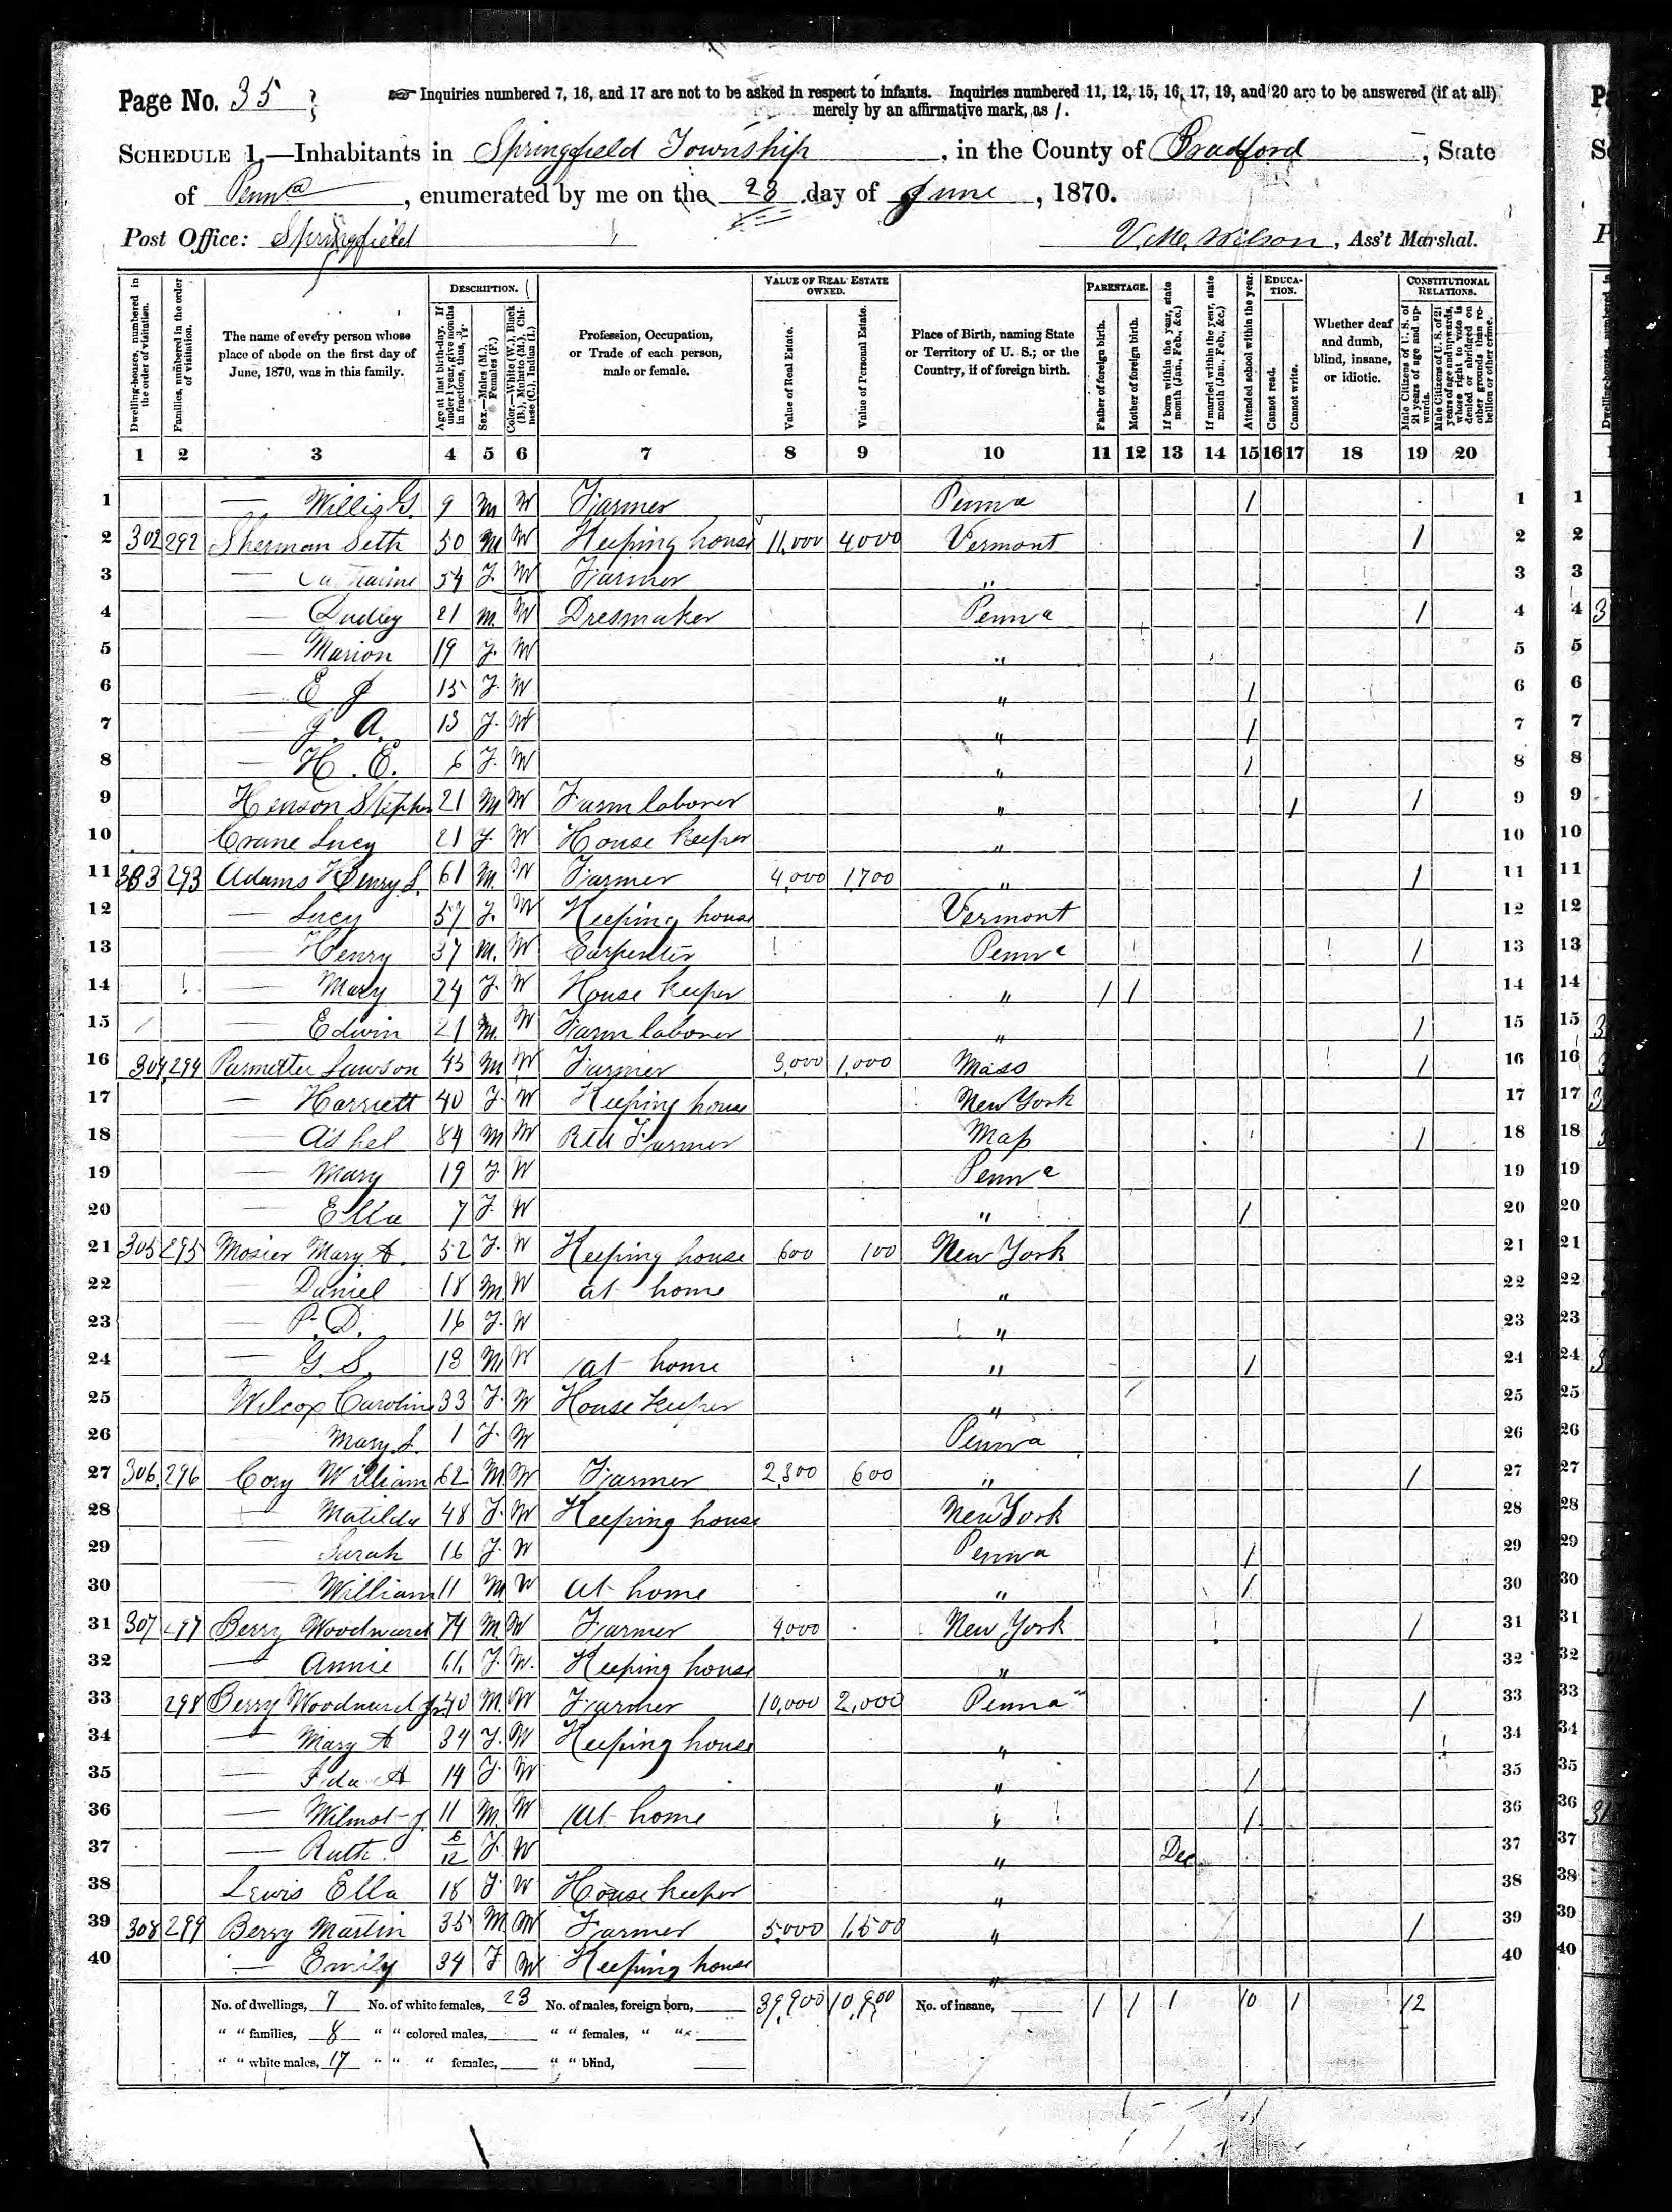 Page No. 35
☞ Inquiries numbered 7, 16, and 17 are not to be asked in respect to infants. Inquiries numbered 11, 12, 15, 16, 17, 19, and 20 are to be answered (if at all)
merely by an affirmative mark, as /.
SCHEDULE 1.—Inhabitants in Springfield Township, in the County of Bradford, State
of Penna, enumerated by me on the 23 day of June, 1870.
Post Office: Springfield
Wilson, Ass't Marshal.
Dwelling-houses, numbered in the order of visitation.
Families, numbered in the order of visitation.
The name of every person whose place of abode on the first day of June, 1870, was in this family.
DESCRIPTION.
Age at last birth-day. If under 1 year, give months in fractions, thus, 3/12.
Sex.—Males (M.), Females (F.)
Color.—White (W.), Black (B.), Mulatto (M.), Chinese (C.), Indian (I.)
Profession, Occupation, or Trade of each person, male or female.
VALUE OF REAL ESTATE OWNED.
Value of Real Estate.
Value of Personal Estate.
Place of Birth, naming State or Territory of U. S.; or the Country, if of foreign birth.
PARENTAGE.
Father of foreign birth.
Mother of foreign birth.
If born within the year, state month (Jan., Feb., &c.)
If married within the year, state month (Jan., Feb., &c.)
Attended school within the year.
EDUCATION.
Cannot read.
Cannot write.
Whether deaf and dumb, blind, insane, or idiotic.
CONSTITUTIONAL RELATIONS.
Male Citizens of U. S. of 21 years of age and upwards.
Male Citizens of U. S. of 21 years of age and upwards, whose right to vote is denied or abridged on other grounds than rebellion or other crime.
1 2 3 4 5 6 7 8 9 10 11 12 13 14 15 16 17 18 19 20
1 — Willis G. 9 M W Farmer Penna / 1
2 302 292 Sherman Seth 50 M W Keeping house 11,000 4000 Vermont / 2
3 — Catharine 54 F. W Farmer " 3
4 — Dudley 21 M. W Dresmaker Penna / 4
5 — Marion 19 F. W " 5
6 — E J 15 F. W " / 6
7 — J. A. 13 F. W " / 7
8 — H. E. 6 F. W " / 8
9 Henson Stephen 21 M W Farm laborer " / / 9
10 Crane Lucy 21 F. W House Keeper " 10
11 303 293 Adams Henry S. 61 M. W Farmer 4,000 1,700 " / 11
12 — Lucy 57 F. W Keeping house Vermont 12
13 — Henry 37 M. W Carpenter Penna / 13
14 — Mary 24 F. W House Keeper " / / 14
15 — Edwin 21 M. W Farm laborer " / 15
16 304 294 Parmetter Lawson 45 M W Farmer 3,000 1,000 Mass / 16
17 — Harriett 40 F. W Keeping house New York 17
18 — Ashel 84 M W Ret Farmer Mass / 18
19 — Mary 19 F W Penna 19
20 — Ella 7 F. W " / 20
21 305 295 Mosier Mary A. 52 F. W Keeping house 600 100 New York 21
22 — Daniel 18 M. W at home " 22
23 — P. D. 16 F. W " 23
24 — G. S. 13 M W at home " / 24
25 Wilcox Caroline 33 F. W House Keeper " 25
26 — Mary L. 1 F. W Penna 26
27 306 296 Cory William 62 M W Farmer 2,300 600 " / 27
28 — Matilda 48 F. W Keeping house New York 28
29 — Sarah 16 F. W Penna / 29
30 — William 11 M W At home " / 30
31 307 297 Berry Woodward 74 M. W Farmer 4,000 New York / 31
32 — Annie 66 F. W. Keeping house " 32
33 298 Berry Woodward Jr. 40 M. W Farmer 10,000 2,000 Penna / 33
34 — Mary A 34 F. W Keeping house " 34
35 — Ida A 14 F. W " / 35
36 — Wilmot J. 11 M. W At home " / 36
37 — Ruth 6/12 F. W " Dec 37
38 Lewis Ella 18 F W House keeper " 38
39 308 299 Berry Martin 35 M W Farmer 5,000 1,500 " / 39
40 — Emily 34 F W Keeping house " 40
No. of dwellings, 7 No. of white females, 23 No. of males, foreign born, 39,900 10,900 No. of insane, 1 1 1 10 1 12
" " families, 8 " " colored males, " " females, " "
" " white males, 17 " " " females, " " blind,